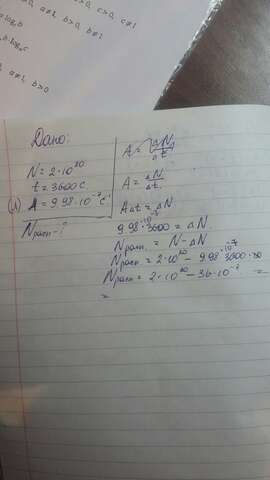 a≠1, b>0
Дано:
N = 2·10²⁰
t = 3600 с
(λ) A = 9,98·10⁻⁷ с⁻¹
Nрасп - ?
A = ΔN / Δt
A = ΔN / Δt.
AΔt = ΔN
9,98·10⁻⁷·3600 = ΔN.
Nрасп. = N - ΔN
Nрасп = 2·10²⁰ - 9,98·10⁻⁷·3600
Nрасп = 2·10²⁰ - 36·10⁻⁷ =
=